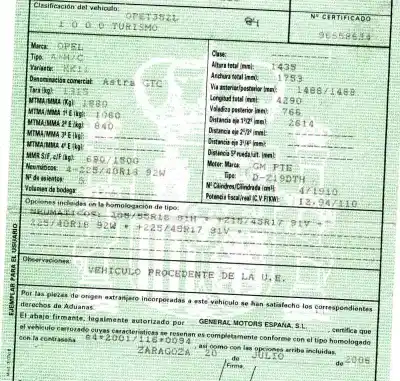 Clasificación del vehículo:
OPET352L
84
Nº CERTIFICADO
1 0 0 0 TURISMO
Marca: OPEL
Tipo: A-H/C
Variante:
Denominación comercial: Astra GTC
Tara (kg): 1315
MTMA/MMA (kg) 1880
MTMA/MMA 1º E (kg): 1060
MTMA/MMA 2º E (kg): 840
MTMA/MMA 3º E (kg):
MTMA/MMA 4º E (kg):
MMR S/F, c/F (kg): 680/1500
Neumáticos: 4-225/40R18 92W
Nº de asientos:
Volumen de bodega:
Clase:
Altura total (mm): 1435
Anchura total (mm): 1753
Vía anterior/posterior (mm): 1488/1488
Longitud total (mm): 4290
Voladizo posterior (mm): 766
Distancia eje 1º/2º (mm): 2614
Distancia eje 2º/3º (mm):
Distancia eje 3º/4º (mm):
Distancia 5ª rueda/ult. (mm):
Motor: Marca: GM PTE
Tipo: D-Z19DTH
Nº Cilindros/Cilindrada (cm³): 4/1910
Potencia fiscal/real (C.V.F/KW): 12.94/110
Opciones incluidas en la homologación de tipo:
NEUMATICOS: 205/55R16 91H * +215/45R17 91V *
225/40R18 92W * +225/45R17 91V
Observaciones:
VEHICULO PROCEDENTE DE LA U.E.
EJEMPLAR PARA EL USUARIO
Por las piezas de origen extranjero incorporadas a este vehículo se han satisfecho los correspondientes
derechos de Aduanas.
El abajo firmante, legalmente autorizado por GENERAL MOTORS ESPAÑA, S.L., certifica que
el vehículo carrozado cuyas características se reseñan es completamente conforme con el tipo homologado
con la contraseña e4*2001/116*0094 así como con las opciones arriba incluidas.
ZARAGOZA 20 de JULIO de 2006
Firma